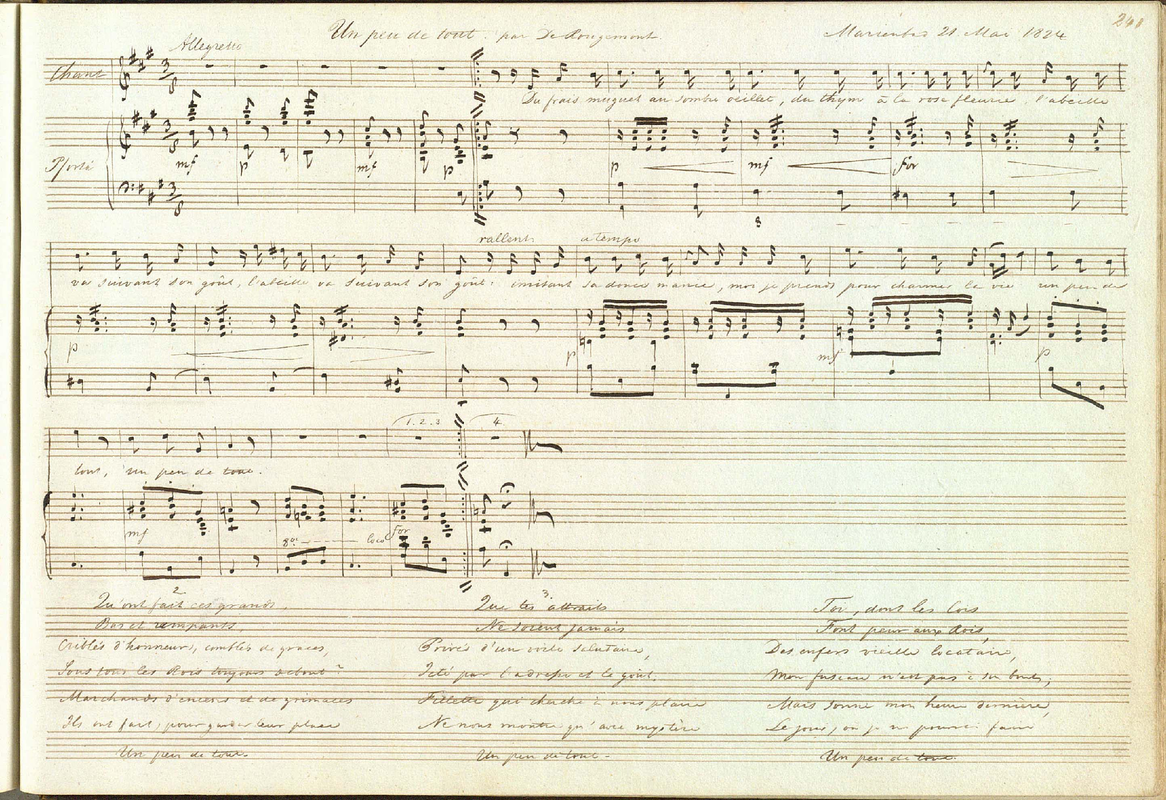 Un peu de tout. par De Rougemont.
Marienbad 21 Mai 1824
Allegretto
Chant
Du frais muguet au sombre oeillet, du thym à la rose fleurie l'abeille
Pforte
mf p mf p p mf for
rallent: a tempo
va suivant son goût, l'abeille va suivant son goût: imitant sa douce manie, moi je prends pour charmer la vie un peu de
p p mf p
1.2.3 4
tout, un peu de tout.
mf 8va loco for
2.
Qu'ont fait ces grands,
Bas et rampants,
Criblés d'honneurs, comblés de graces,
Sous tous les Rois toujours debout?
Marchands d'encens et de grimaces
Ils ont fait, pour garder leur place
Un peu de tout.
3.
Que tes attraits
Ne soient jamais
Privés d'un voile salutaire,
Jeté par l'adresse et le goût.
Fillette qui cherche à nous plaire
Ne nous montre qu'avec mystère
Un peu de tout.
Toi, dont les lois
Font peur aux Rois,
Des enfers vieille locataire,
Mon fuseau n'est pas à son bout;
Mais sonne mon heure dernière,
Le jour, où je ne pourrai faire
Un peu de tout.